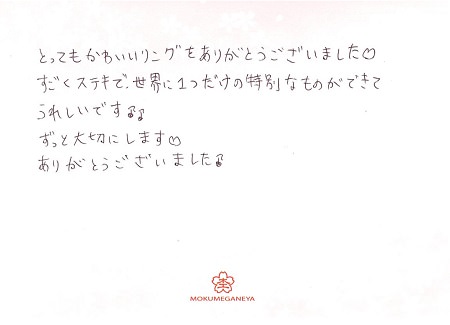 とってもかわいいリングをありがとうございました♡
すごくステキで、世界に1つだけの特別なものができて
うれしいです♪♪
ずっと大切にします♡
ありがとうございました♪
MOKUMEGANEYA